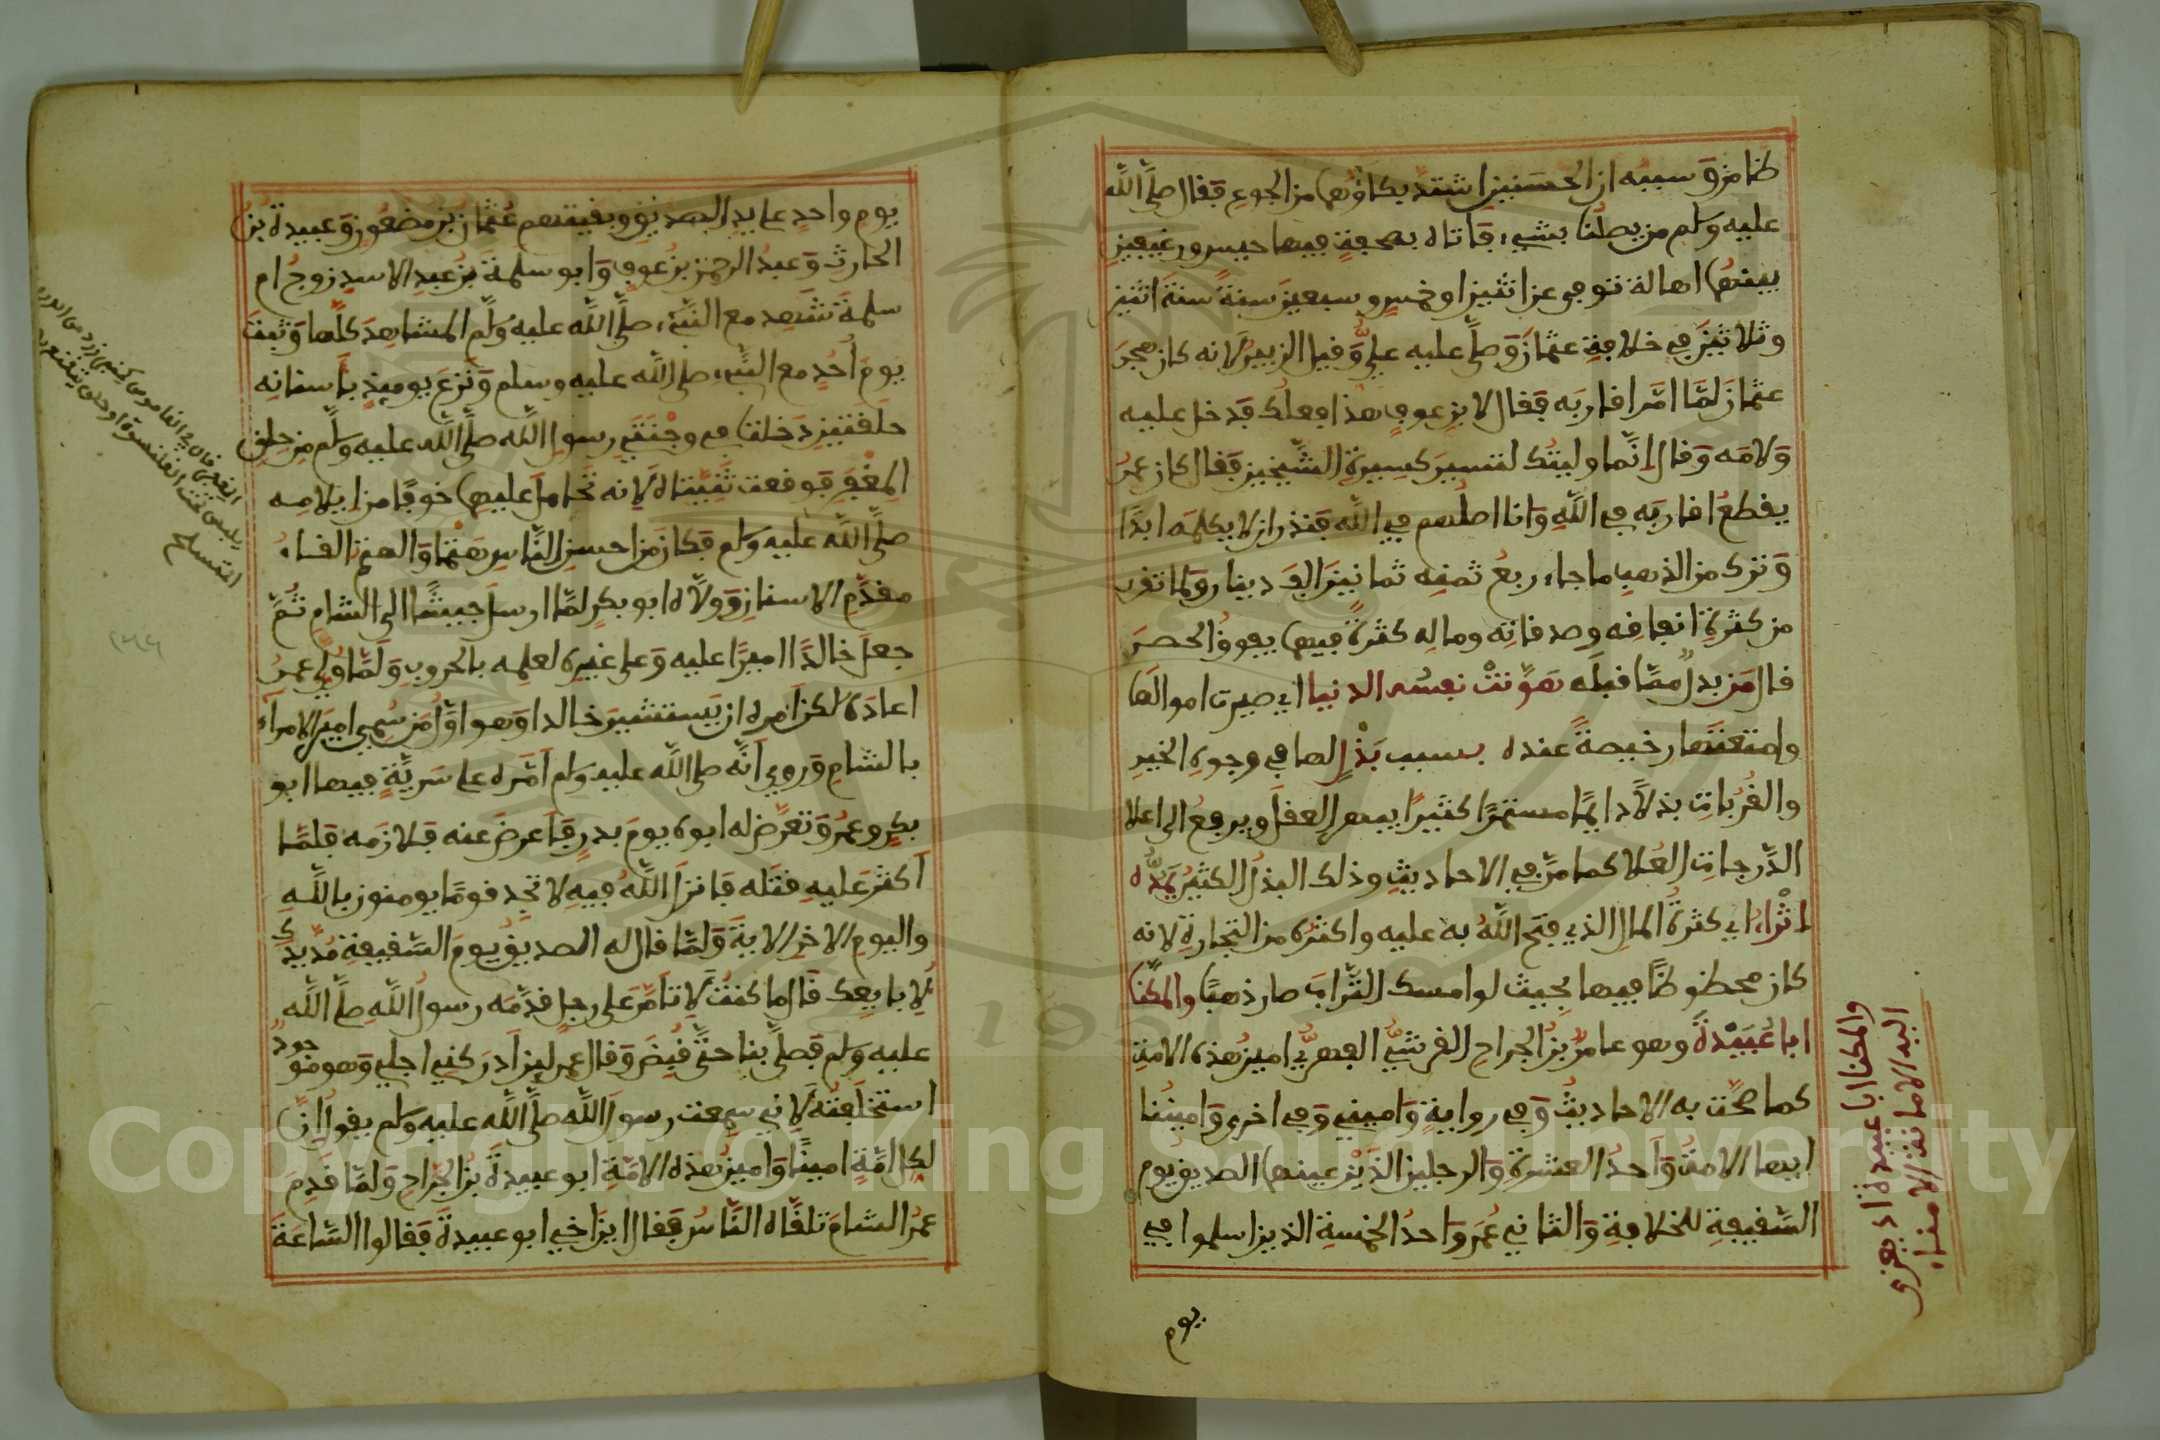 ظاهر وسببه ان الحسنين اشتد بكاؤهما من الجوع فقال صلى الله
عليه وسلم من يصلنا بشيء فاتاه بصحفة فيها حيس ورغيفين
بينهما اهالة توفي عن اثنين او خمس وسبعين سنة سنة اثنين
وثلاثين في خلافة عثمان وصلى عليه علي وقيل الزبير لانه كان هجر
عثمان لما امر اقاربه فقال لابن عوف هذا فعلك فدخل عليه
ولامه وقال انما وليتك لتسير كسيرة الشيخين فقال كان عمر
يقطع اقاربه في الله وانا اصلهم في الله فنذر ان لا يكلمه ابدا
وترك من الذهب ما جاء ربع ثمنه ثمانين الف دينار ولما تقرر
من كثرة انفاقه وصدقاته وماله كثرة فيهما يفوق الحصر
قال مبدلا مما قبله هونت نفسه الدنيا اي صيرت اموالها
وامتعتها رخيصة عنده بسبب بذل لها في وجوه الخير
والقربات بذلا دايما مستمرا كثيرا يبهر العقل ويرفع الى اعلا
الدرجات العلا كما مر في الاحاديث وذلك البذل الكثير يمده
اثراء اي كثرة المال الذي فتح الله به عليه واكثره من التجارة لانه
كان محظوظا فيها بحيث لو امسك التراب صار ذهبا والمكنا
ابا عبيدة وهو عامر بن الجراح القرشي الفهري امين هذه الامة
كما صحت به الاحاديث وفي رواية واميني وفي اخرى واميننا
ايها الامة واحد العشرة والرجلين الذين عينهما الصديق يوم
السقيفة للخلافة والثاني عمر واحد الخمسة الذين اسلموا في
يوم
والمكنا ابا عبيدة اذ يعزى
اليه الامانة الامناء
يوم واحد على يد الصديق وبقيتهم عثمان بن مضعون وعبيدة بن
الحارث وعبد الرحمن بن عوف وابو سلمة بن عبد الاسد زوج ام
سلمة شهد مع النبيء صلى الله عليه وسلم المشاهد كلها وثبت
يوم احد مع النبيء صلى الله عليه وسلم ونزع يوميذ باسنانه
حلقتين دخلتا في وجنتي رسول الله صلى الله عليه وسلم من حلق
المغفر فوقعت ثنيتاه لانه تحامل عليهما خوفا من ايلامه
صلى الله عليه وسلم فكان من احسن الناس هتما والهتم القاء
مقدم الاسنان وولاه ابو بكر لما ارسل جيشا الى الشام ثم
جعل خالدا اميرا عليه وعلى غيره لعلمه بالحروب ولما ولي عمر
اعاده لكن امره ان يستشير خالدا وهو اول من سمي امير الامراء
بالشام وروي انه صلى الله عليه وسلم امره على سرية فيها ابو
بكر وعمر وتعرض له ابوه يوم بدر فاعرض عنه فلازمه فلما
اكثر عليه قتله فانزل الله فيه لا تجد قوما يومنون بالله
واليوم الاخر الاية ولما قال له الصديق يوم السقيفة مد يدك
لابايعك قال ما كنت لاتامر على رجل قدمه رسول الله صلى الله
عليه وسلم فصلى بنا حتى قبض وقال عمر لين ادركني اجلي وهو موجود
استخلفته لاني سمعت رسول الله صلى الله عليه وسلم يقول ان
لكل امة امينا وامين هذه الامة ابو عبيدة بن الجراح ولما قدم
عمر الشام تلقاه الناس فقال اين اخي ابو عبيدة فقالوا الساعة
المغفر قال في القاموس كمنبر زرد من الدرع
يلبس تحت القلنسوة او حلق يتقنع بها
المتسلح
Copyright © King Saud University
1957